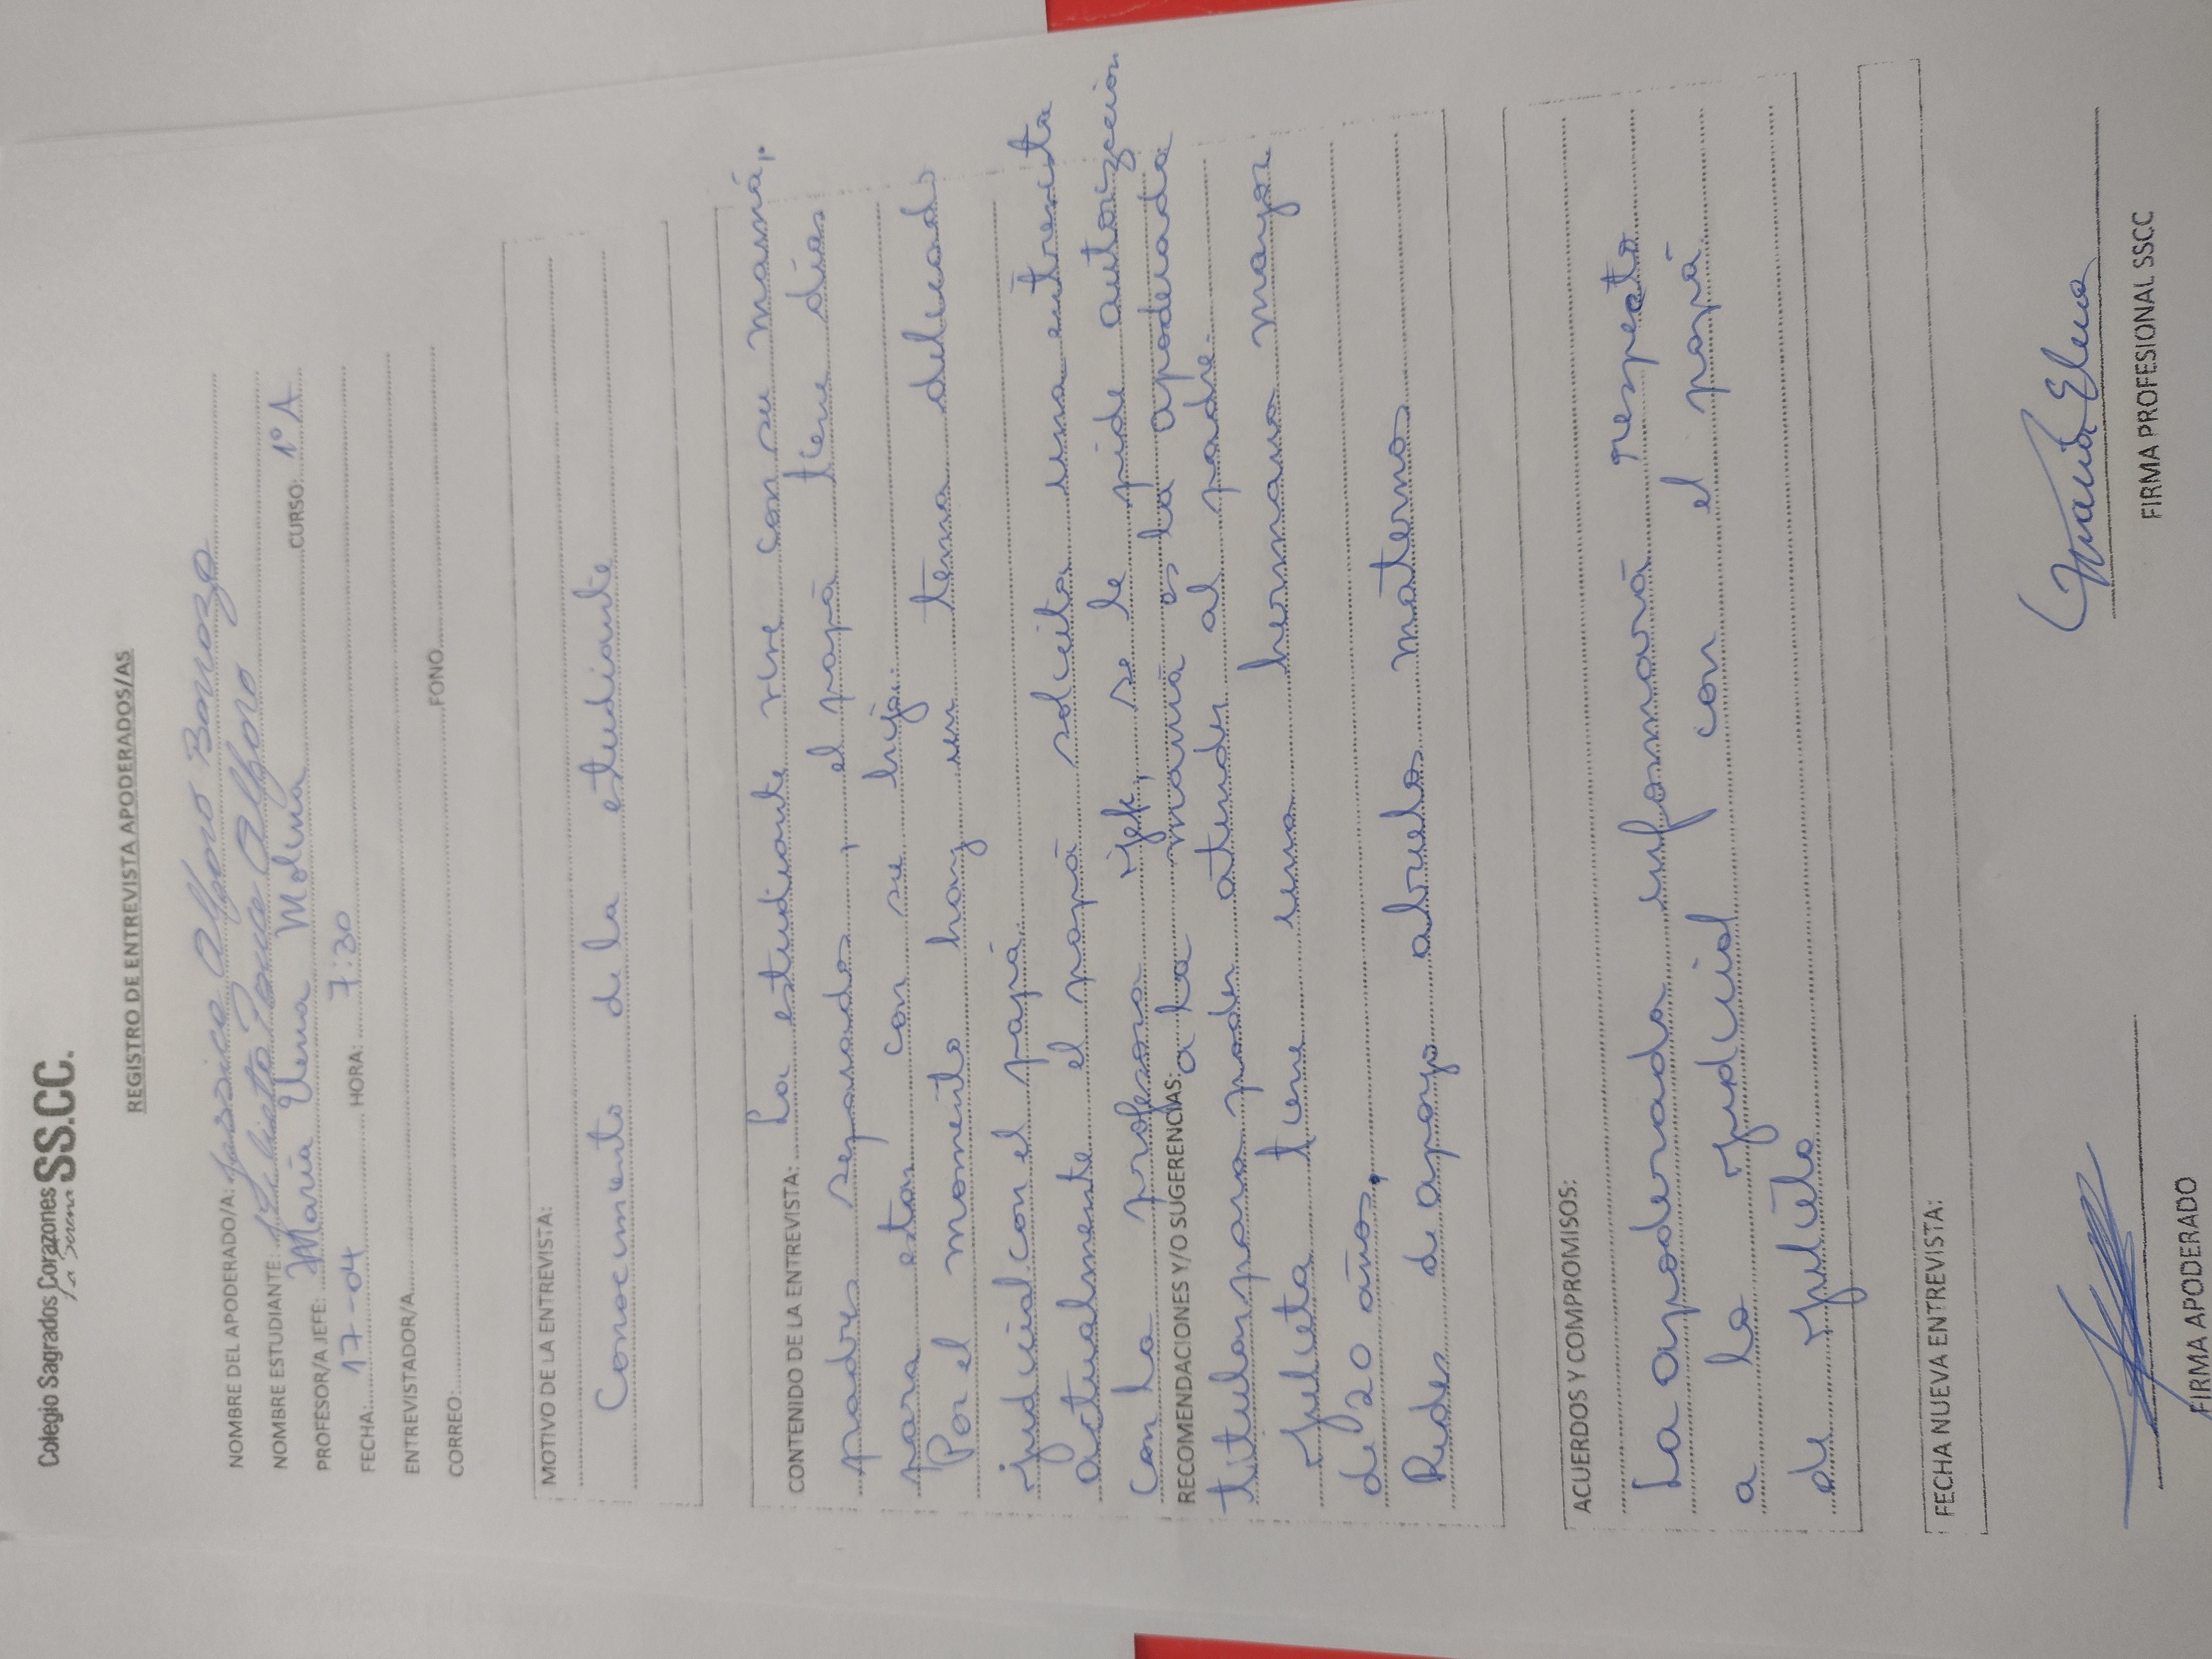 Colegio Sagrados Corazones SS.CC.
La Serena
REGISTRO DE ENTREVISTA APODERADOS/AS
NOMBRE DEL APODERADO/A: Jessica Alfaro Barraza
NOMBRE ESTUDIANTE: Julieta Ponce Alfaro
PROFESOR/A JEFE: María Elena Molina CURSO: 1° A
FECHA: 17-04 HORA: 7:30
ENTREVISTADOR/A
CORREO: FONO
MOTIVO DE LA ENTREVISTA:
Conocimiento de la estudiante
CONTENIDO DE LA ENTREVISTA: La estudiante vive con su mamá,
padres separados, el papá tiene días
para estar con su hija.
Por el momento hay un tema delicado
judicial con el papá.
actualmente el papá solicita una entrevista
con la profesora jefe, se le pide autorización
RECOMENDACIONES Y/O SUGERENCIAS: a la mamá es la apoderada
titular para poder atender al padre.
Julieta tiene una hermana mayor
de 20 años.
Redes de apoyo abuelos maternos
ACUERDOS Y COMPROMISOS:
La apoderada informará respecto
a lo judicial con el papá
de Julieta
FECHA NUEVA ENTREVISTA:
FIRMA APODERADO
María Elena
FIRMA PROFESIONAL SSCC